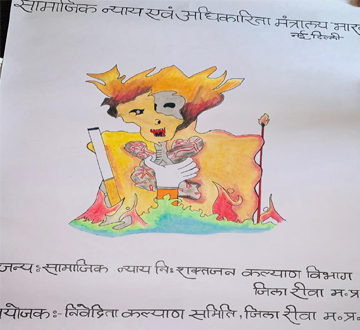 सामाजिक न्याय एवं अधिकारिता मंत्रालय भार
नई दिल्ली
जन्य:सामाजिक न्याय नि:शक्तजन कल्याण विभाग
जिला रीवा म.प्र
योजक:- निवेदिता कल्याण समिति, जिला रीवा म.प्र.